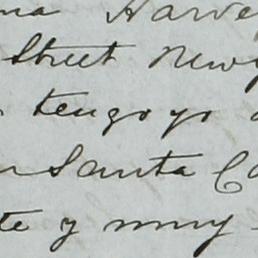 na Harve
Street New
tengo yo
Santa C
te y muy